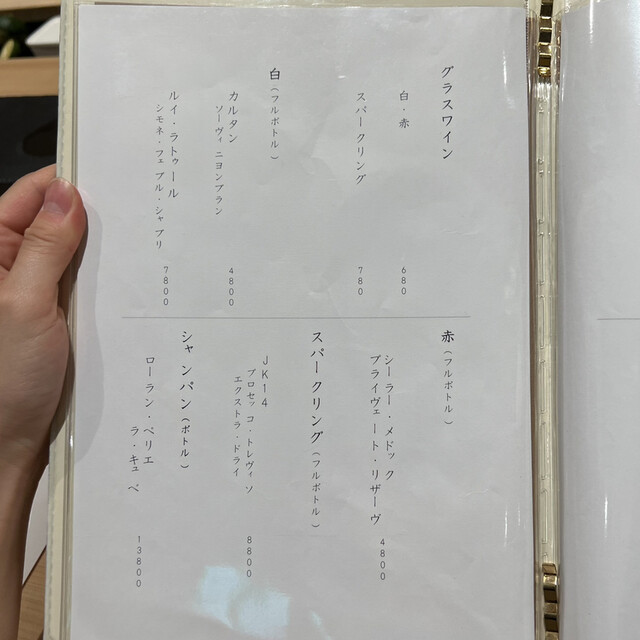 グラスワイン
白・赤 680
スパークリング 780
白（フルボトル）
カルタン
ソーヴィニヨンブラン 4800
ルイ・ラトゥール
シモネ・フェブル・シャブリ 7800
赤（フルボトル）
シーラー・メドック
プライヴェート・リザーヴ 4800
スパークリング（フルボトル）
JK14
プロセッコ・トレヴィソ
エクストラ・ドライ 8800
シャンパン（ボトル）
ローラン・ペリエ
ラ・キュベ 13800